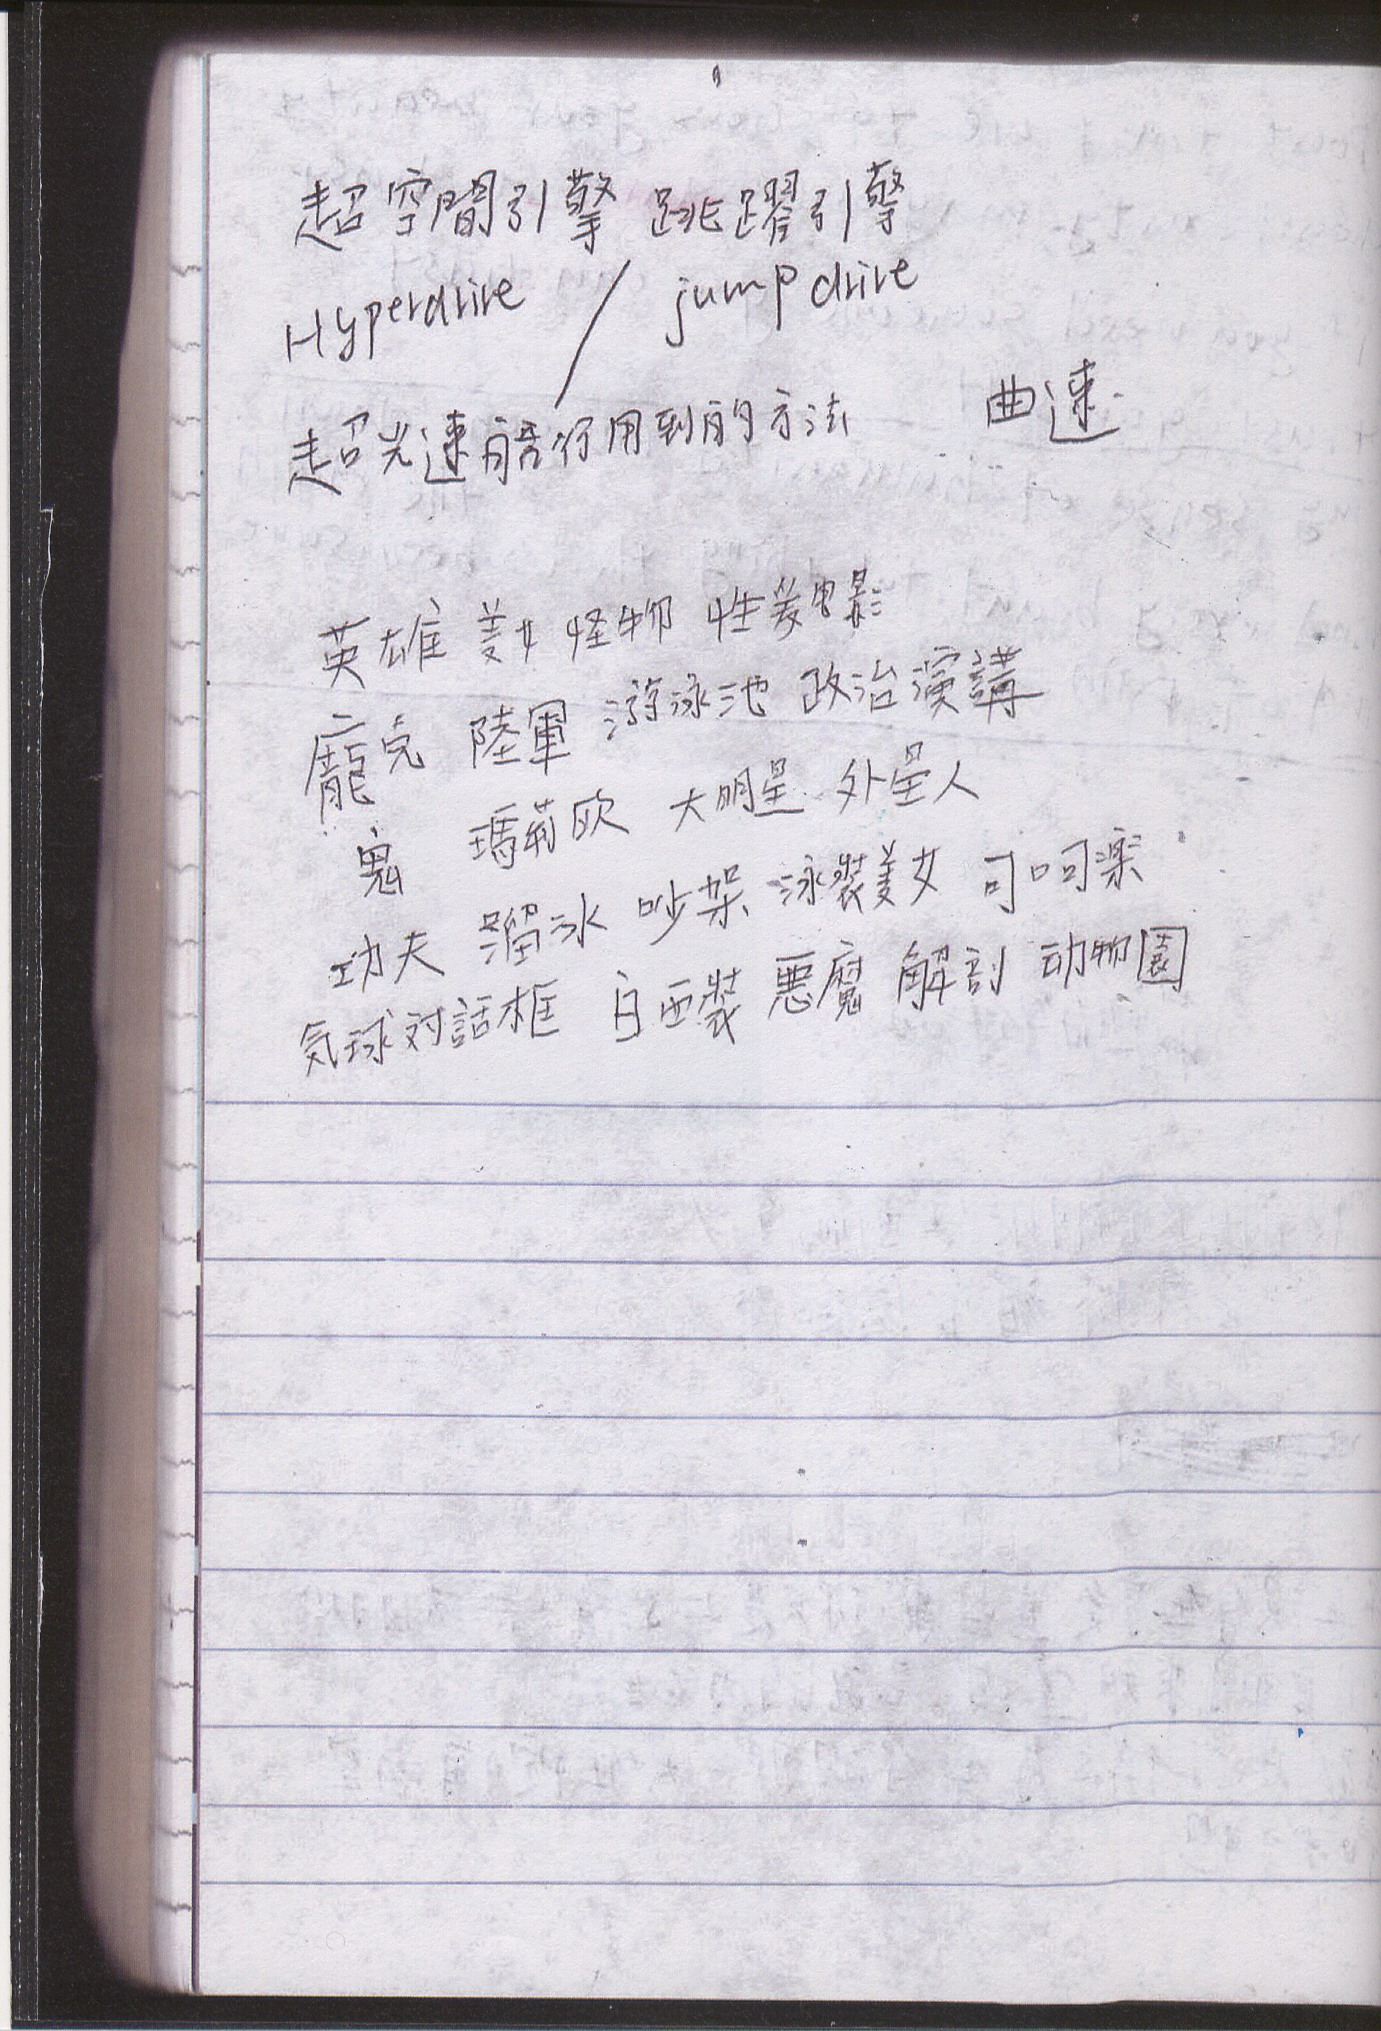 超空間引擎 跳躍引擎
Hyperdrive / jump drive
超光速航行用到的方法 曲速
英雄 美女 怪物 性愛電影
龐克 陸軍 游泳池 政治演講
鬼 瑪莉歐 大明星 外星人
功夫 溜冰 吵架 泳裝美女 可口可楽
気球対話框 白西装 悪魔 解剖 动物園